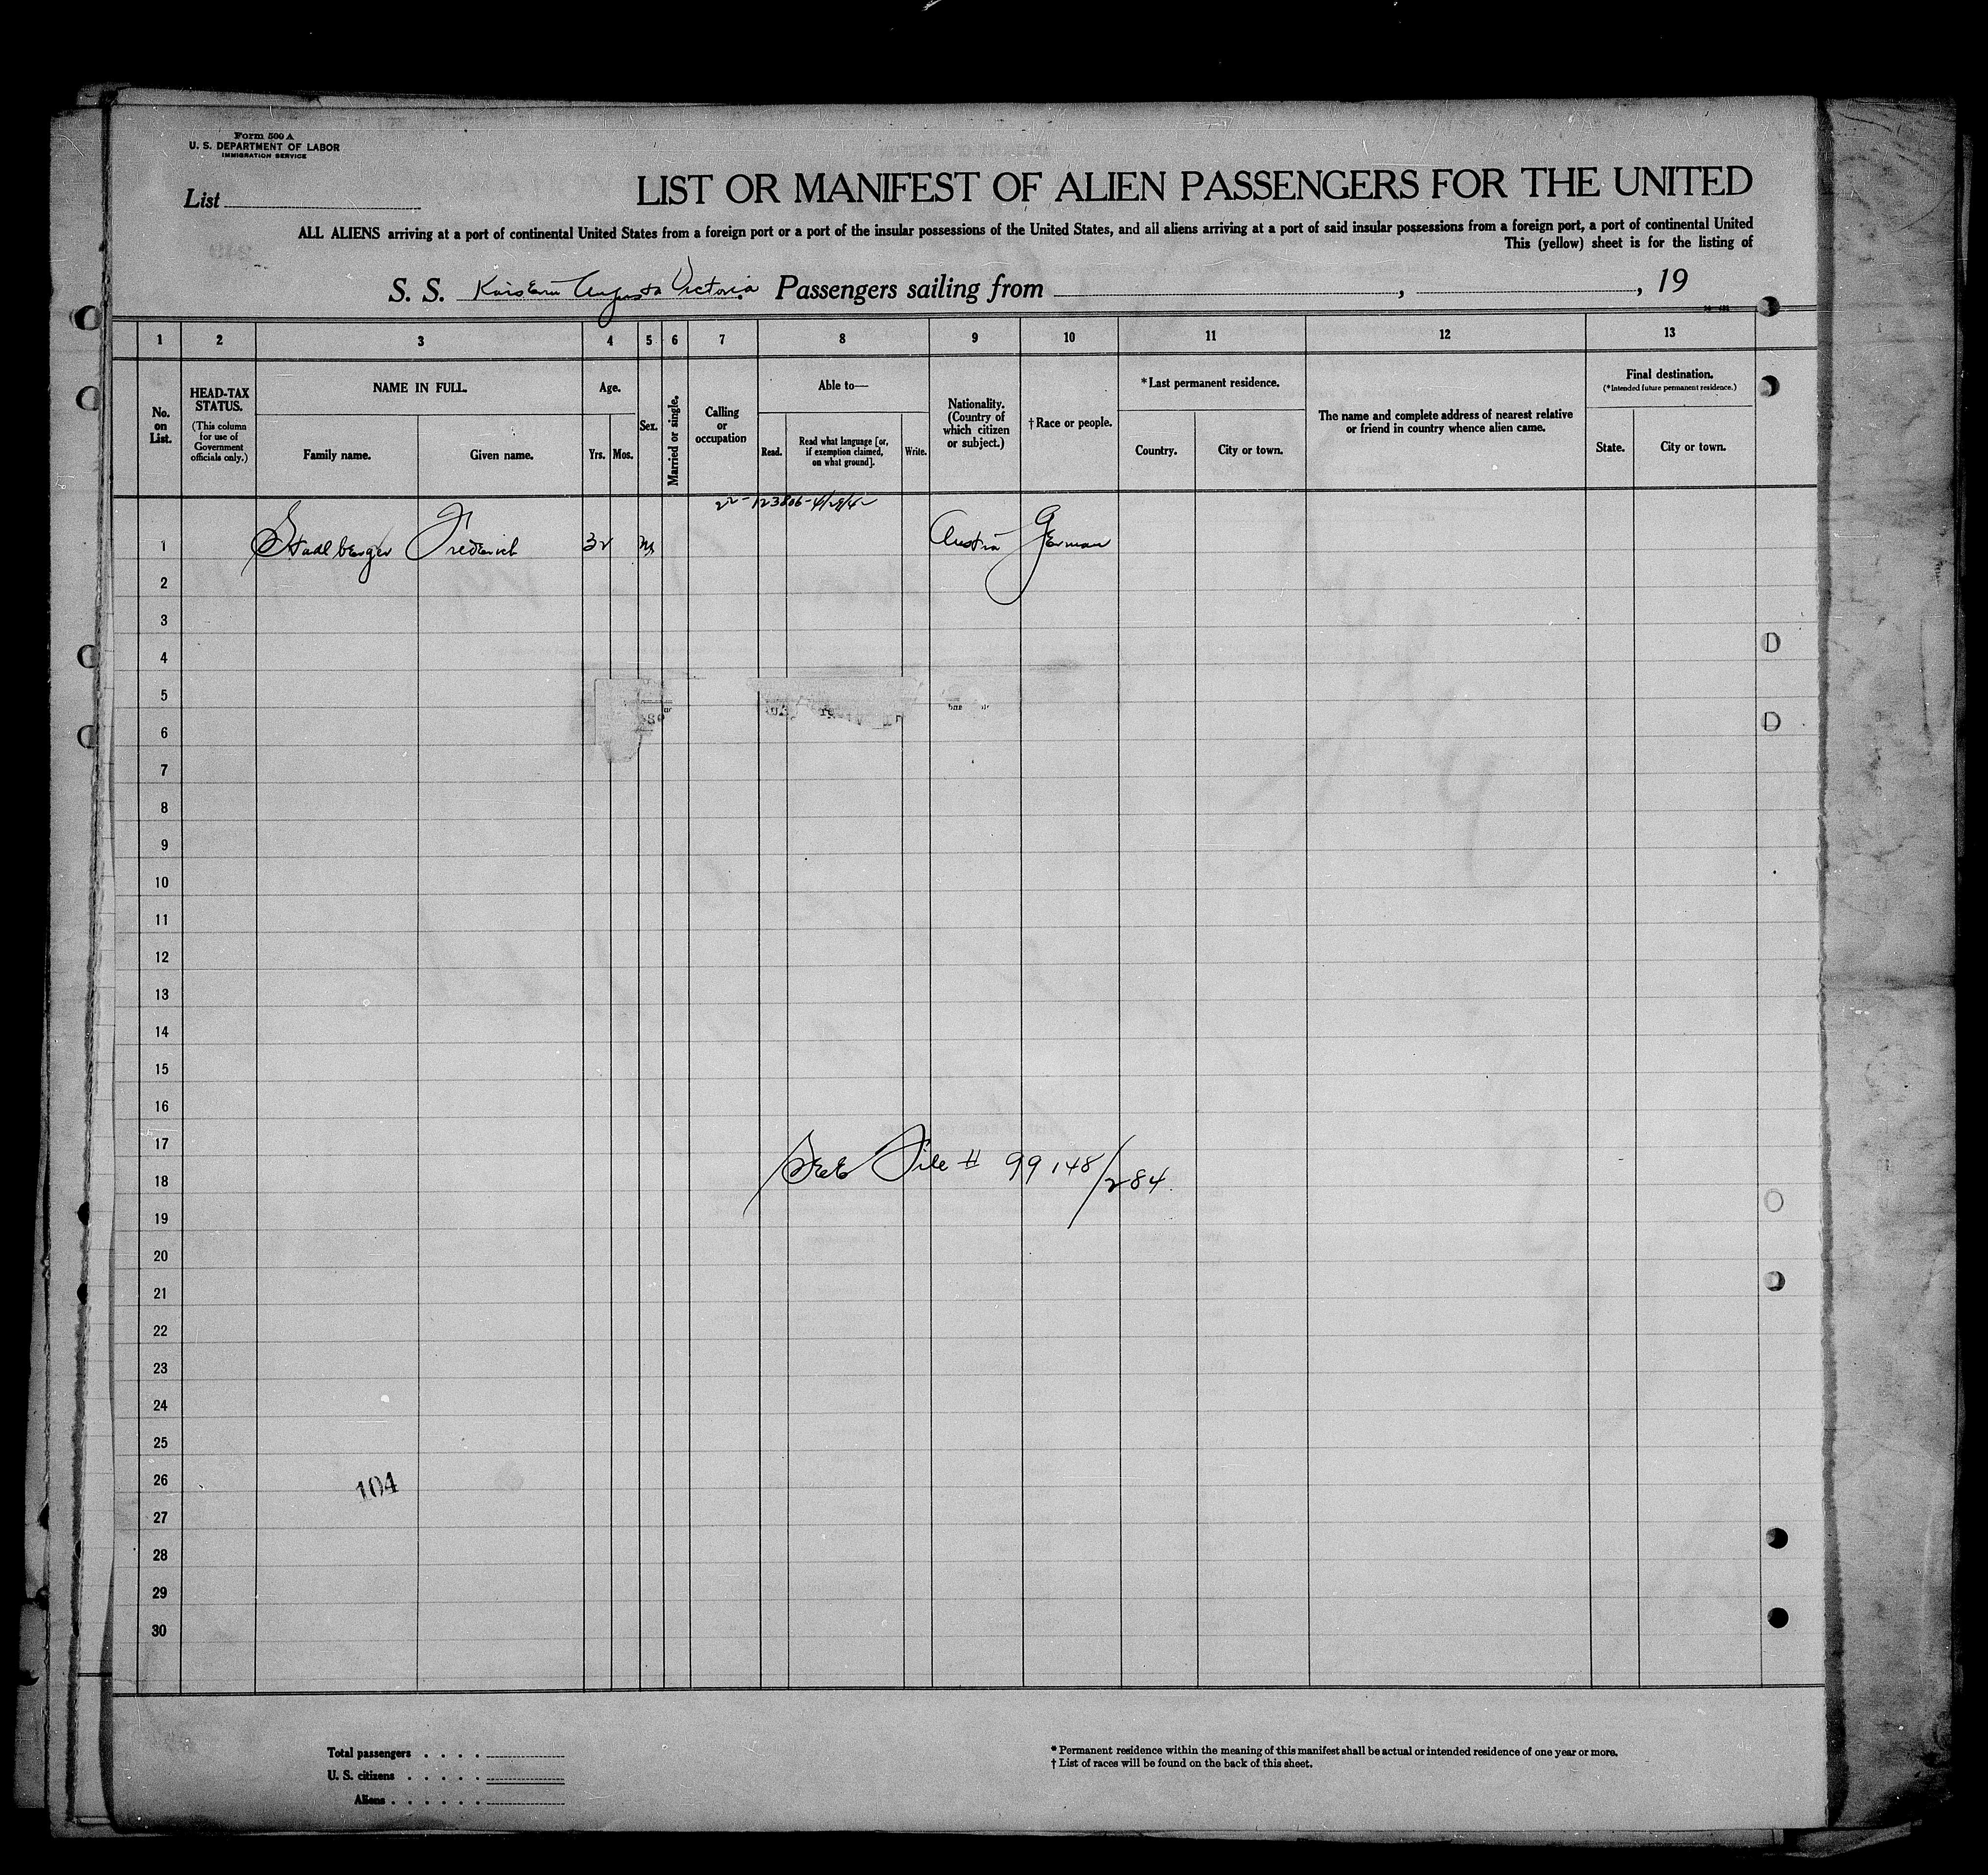 Form 500 A
U. S. DEPARTMENT OF LABOR
IMMIGRATION SERVICE
List
LIST OR MANIFEST OF ALIEN PASSENGERS FOR THE UNITED
ALL ALIENS arriving at a port of continental United States from a foreign port or a port of the insular possessions of the United States, and all aliens arriving at a port of said insular possessions from a foreign port, a port of continental United
This (yellow) sheet is for the listing of
S. S. Kaiserin Augusta Victoria Passengers sailing from , , 19
1 2 3 4 5 6 7 8 9 10 11 12 13
No. on List.
HEAD-TAX STATUS.
(This column for use of Government officials only.)
NAME IN FULL.
Family name. Given name.
Age.
Yrs. Mos.
Sex.
Married or single.
Calling or occupation
Able to—
Read. Read what language [or, if exemption claimed, on what ground]. Write.
Nationality. (Country of which citizen or subject.)
†Race or people.
*Last permanent residence.
Country. City or town.
The name and complete address of nearest relative or friend in country whence alien came.
Final destination.
(*Intended future permanent residence.)
State. City or town.
22-123806-4/28/42
1 Stadlberger Frederich 32 M Austria German
2
3
4
5
6
7
8
9
10
11
12
13
14
15
16
17
See File # 99148/284.
18
19
20
21
22
23
24
25
26
104
27
28
29
30
Total passengers . . . .
U. S. citizens . . . . .
Aliens . . . . . .
* Permanent residence within the meaning of this manifest shall be actual or intended residence of one year or more.
† List of races will be found on the back of this sheet.